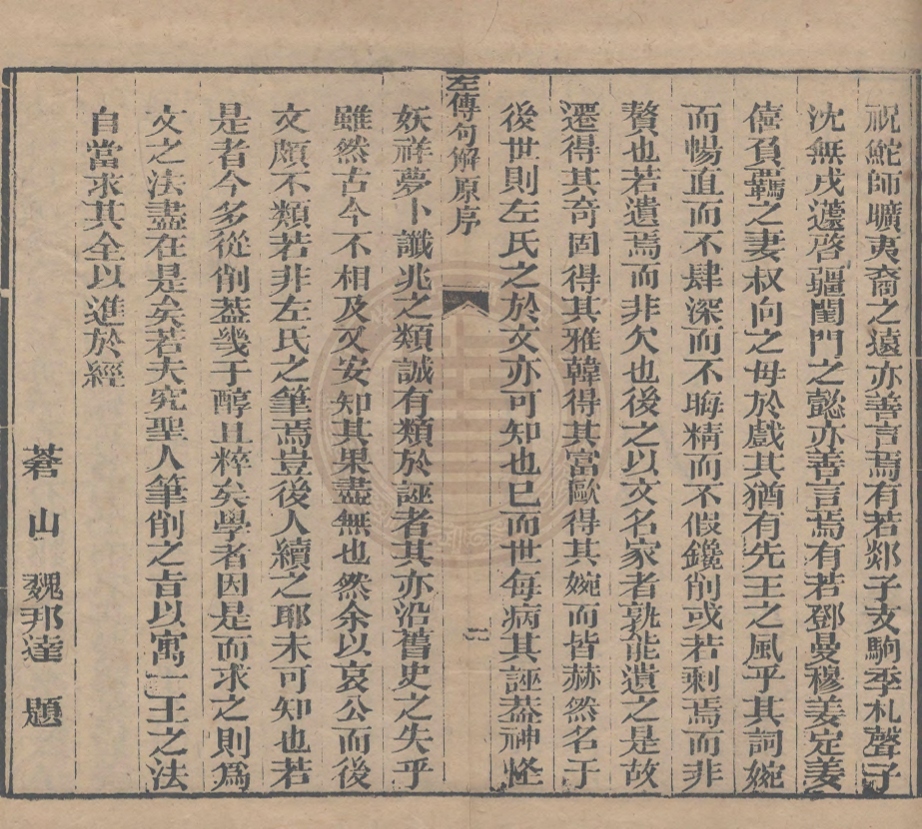 祝鮀師曠夷裔之遠亦善言焉有若郯子支駒季札聲子
沈無戌薳啓疆閨門之懿亦善言焉有若鄧曼穆姜定姜
僖負羈之妻叔向之母於戲其猶有先王之風乎其詞婉
而暢直而不肆深而不晦精而不假鑱削或若剩焉而非
贅也若遺焉而非欠也後之以文名家者孰能遺之是故
遷得其奇固得其雅韓得其富歐得其婉而皆赫然名于
後世則左氏之於文亦可知也已而世每病其誣葢神怪
左傳句解原序
二
妖祥夢卜讖兆之類誠有類於誣者其亦沿舊史之失乎
雖然古今不相及又安知其果盡無也然余以哀公而後
文頗不類若非左氏之筆焉豈後人續之耶未可知也若
是者今多從削葢幾于醇且粹矣學者因是而求之則爲
文之法盡在是矣若夫究聖人筆削之旨以寓一王之法
自當求其全以進於經
蒼山 魏邦達 題